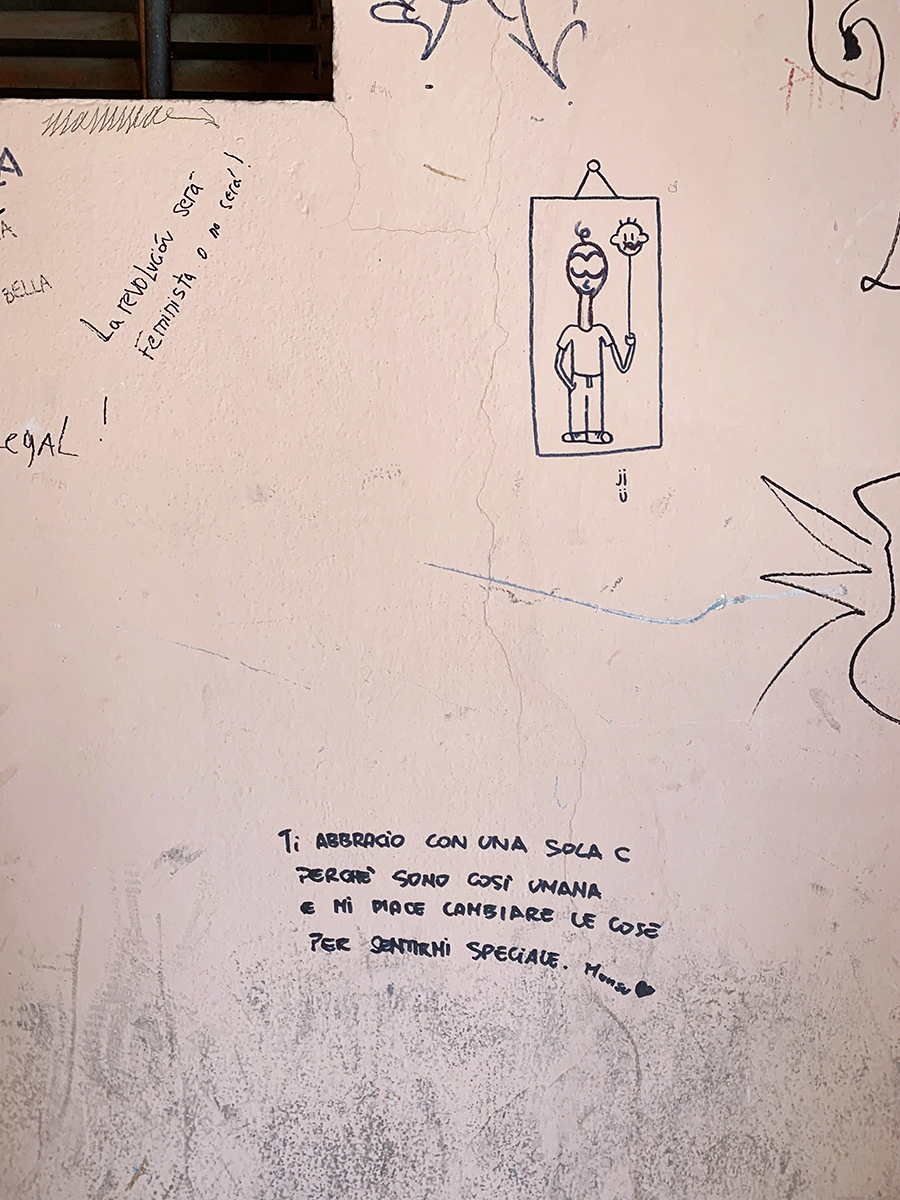 A
BELLA
La revolución será
Feminista o no será!
egAL !
ji
ü
Ti ABBRACIO CON UNA SOLA C
PERCHÈ SONO COSÌ UMANA
E MI PIACE CAMBIARE LE COSE
PER SENTIRMI SPECIALE.